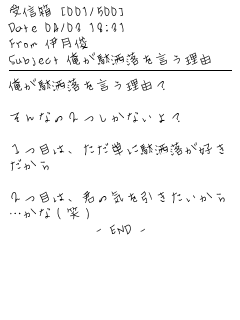 受信箱 [001/500]
Date 04/03 18:31
From 伊月俊
Subject 俺が駄洒落を言う理由
俺が駄洒落を言う理由？
そんなの2つしかないよ？
1つ目は、ただ単に駄洒落が好き
だから
2つ目は、君の気を引きたいから
…かな(笑)
- END -